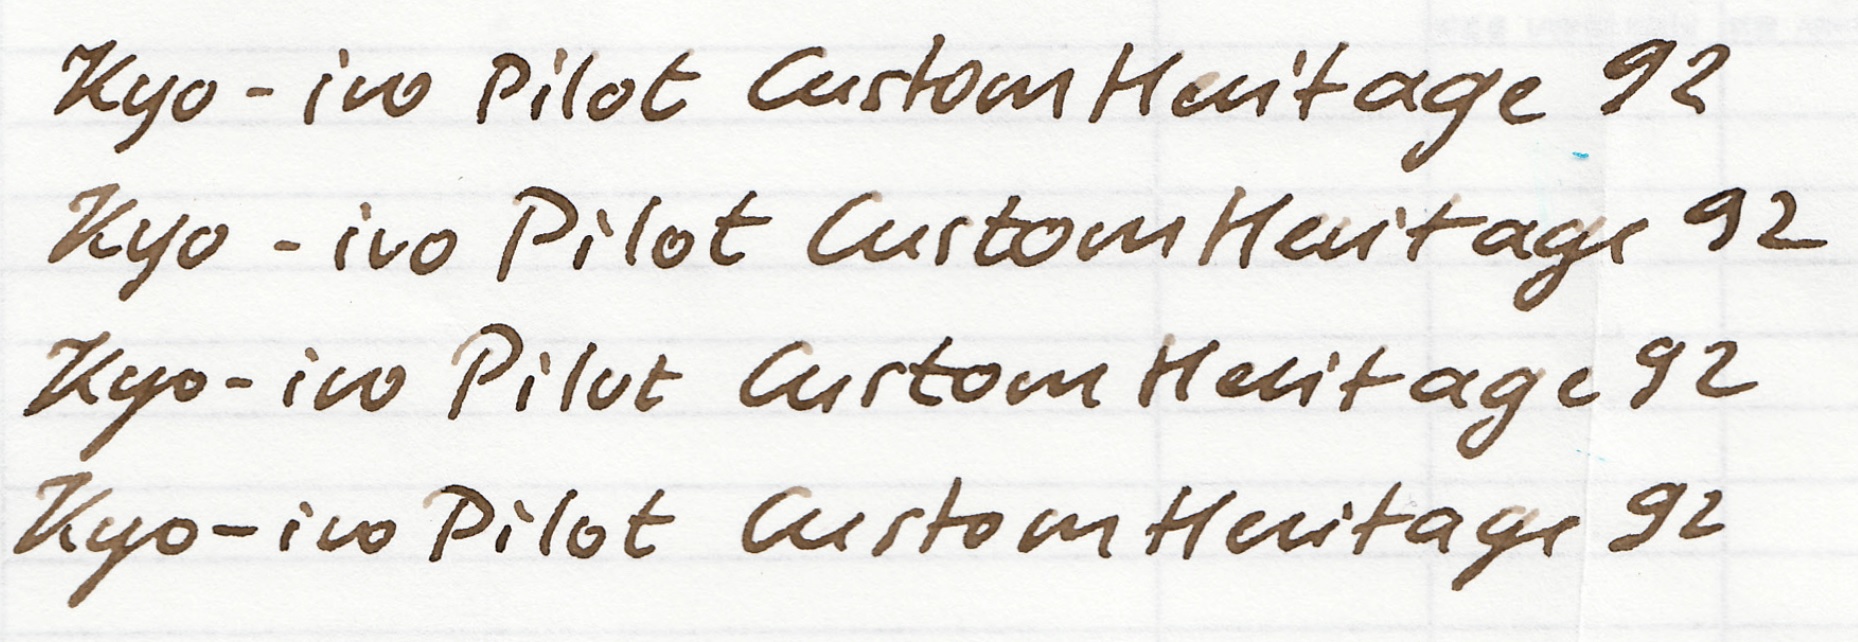 Kyo-iro Pilot Custom Heritage 92
Kyo-iro Pilot Custom Heritage 92
Kyo-iro Pilot Custom Heritage 92
Kyo-iro Pilot Custom Heritage 92